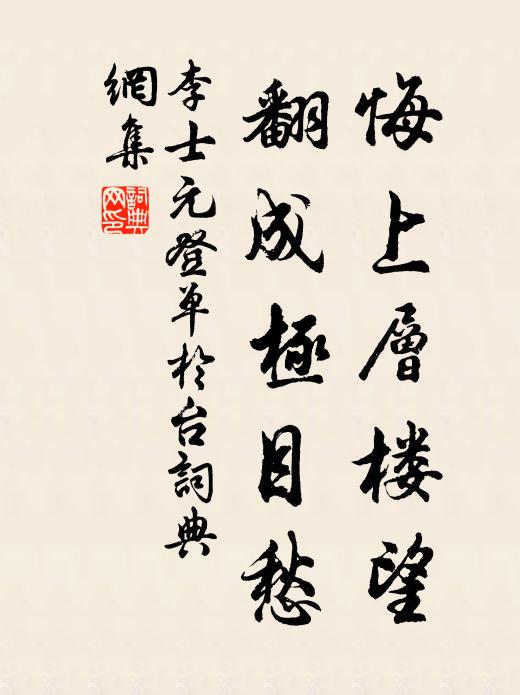 悔上層楼望
翻成極目愁
李士元登单於台詞典
網集
詞典
网印